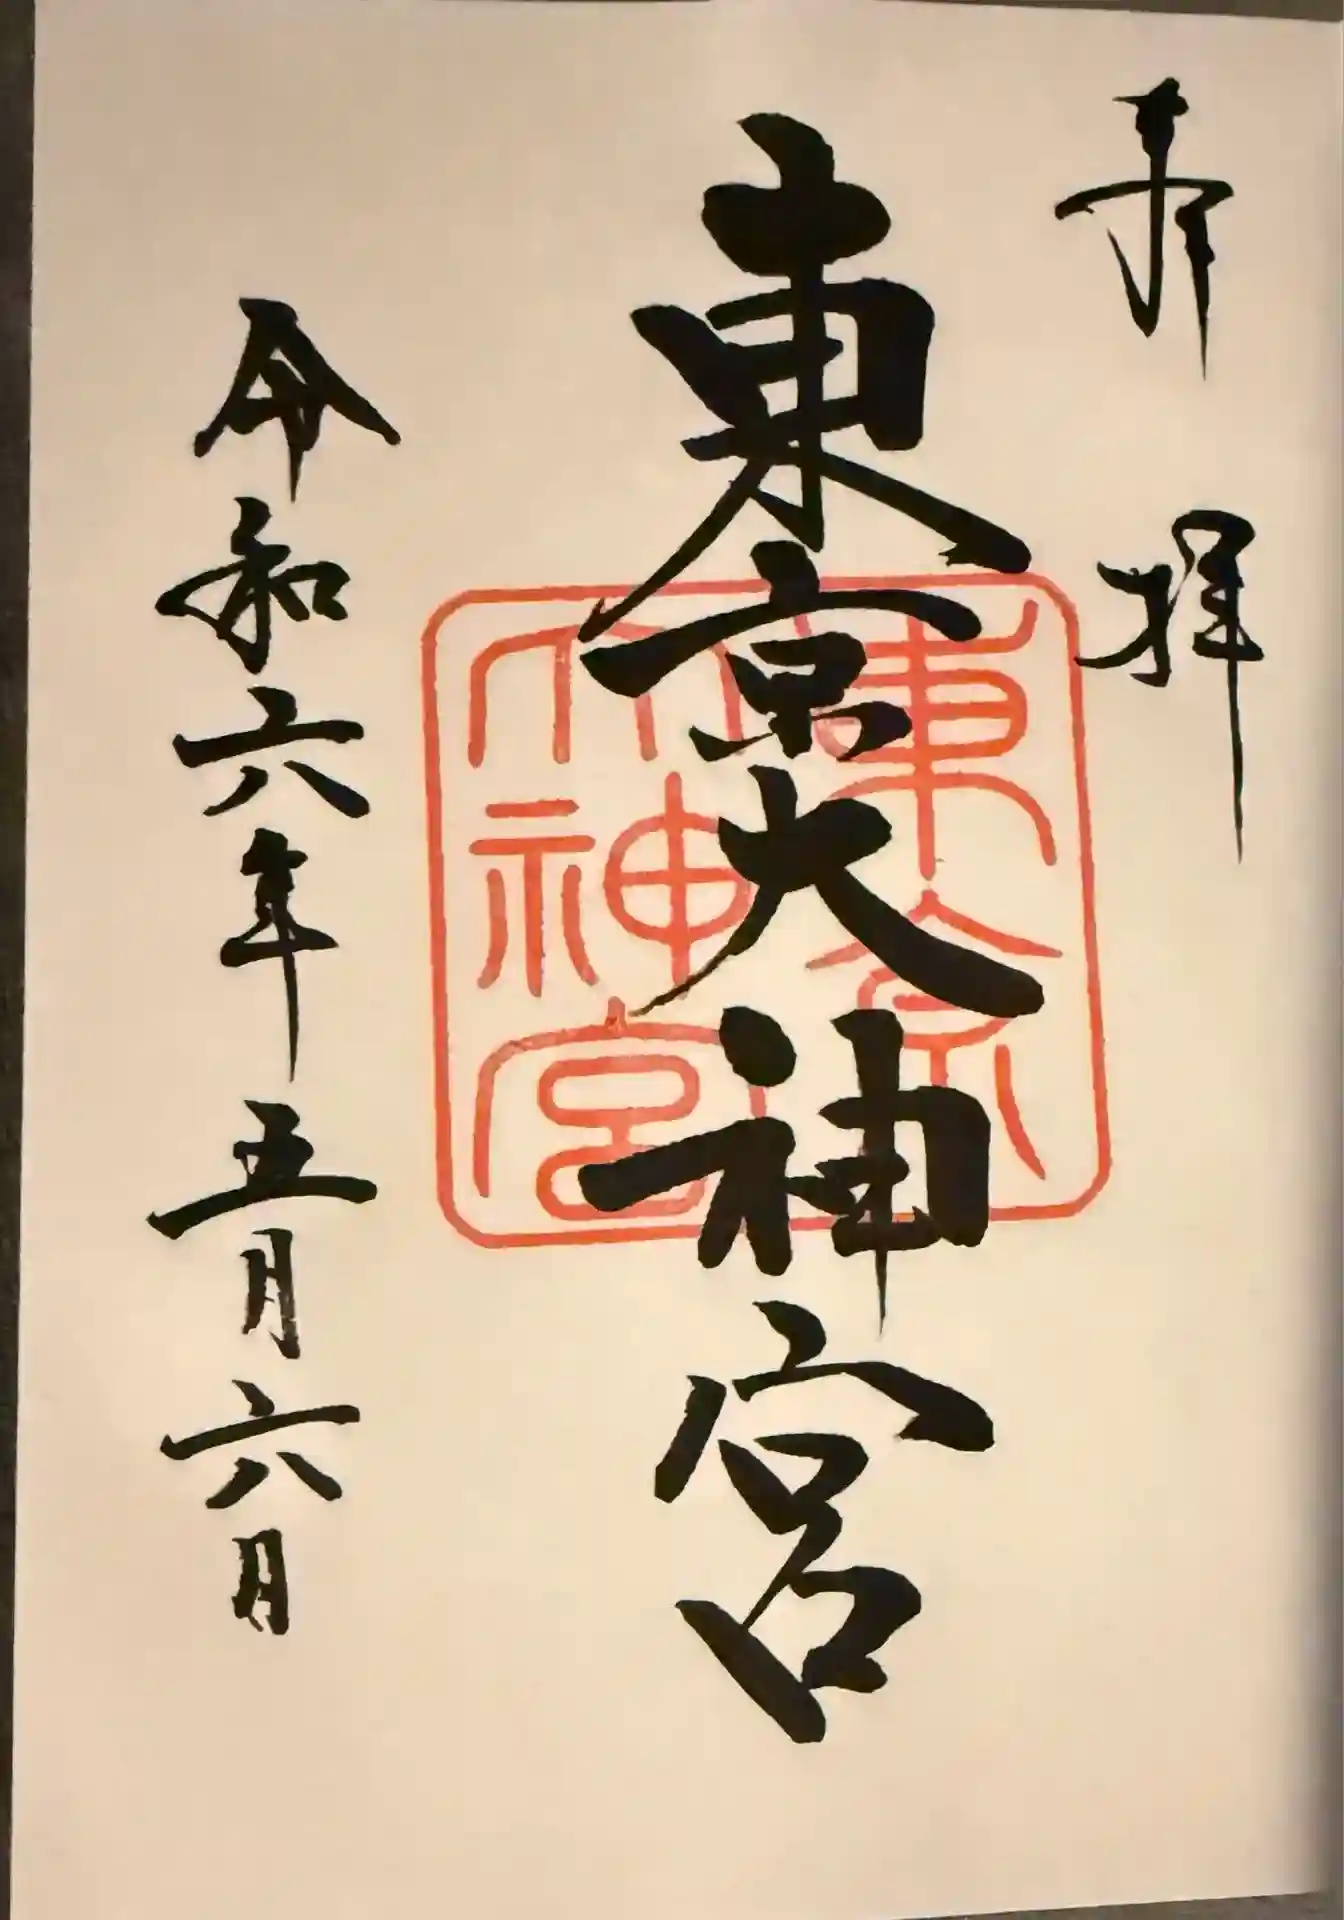 奉拝
東京大神宮
東京大神宮
令和六年五月六日